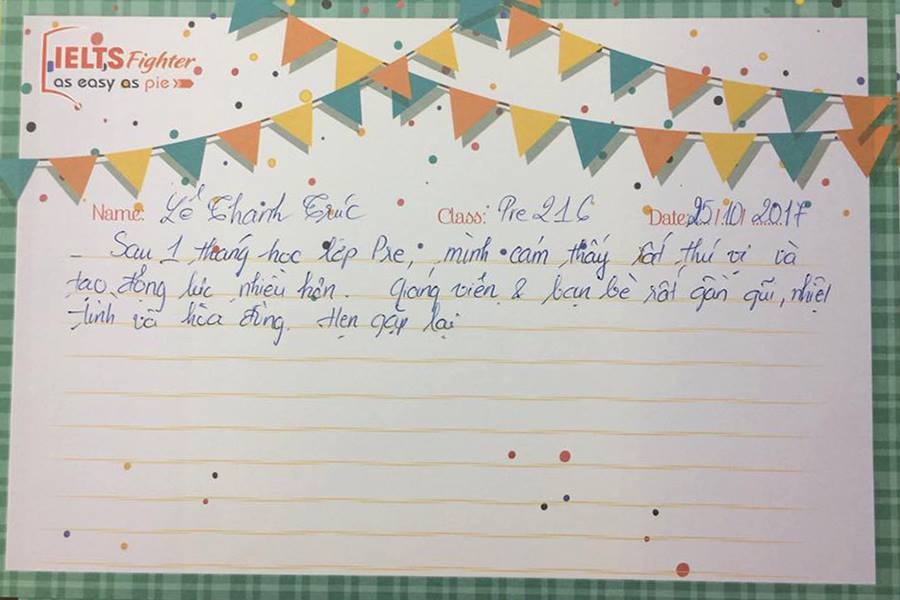 IELTS Fighter
as easy as pie
Name: Lê Thanh Trúc Class: Pre 216 Date: 25/10/2017
- Sau 1 tháng học lớp Pre, mình cảm thấy rất thú vị và
tạo động lực nhiều hơn. Giảng viên & bạn bè rất gần gũi, nhiệt
tình và hòa đồng. Hẹn gặp lại